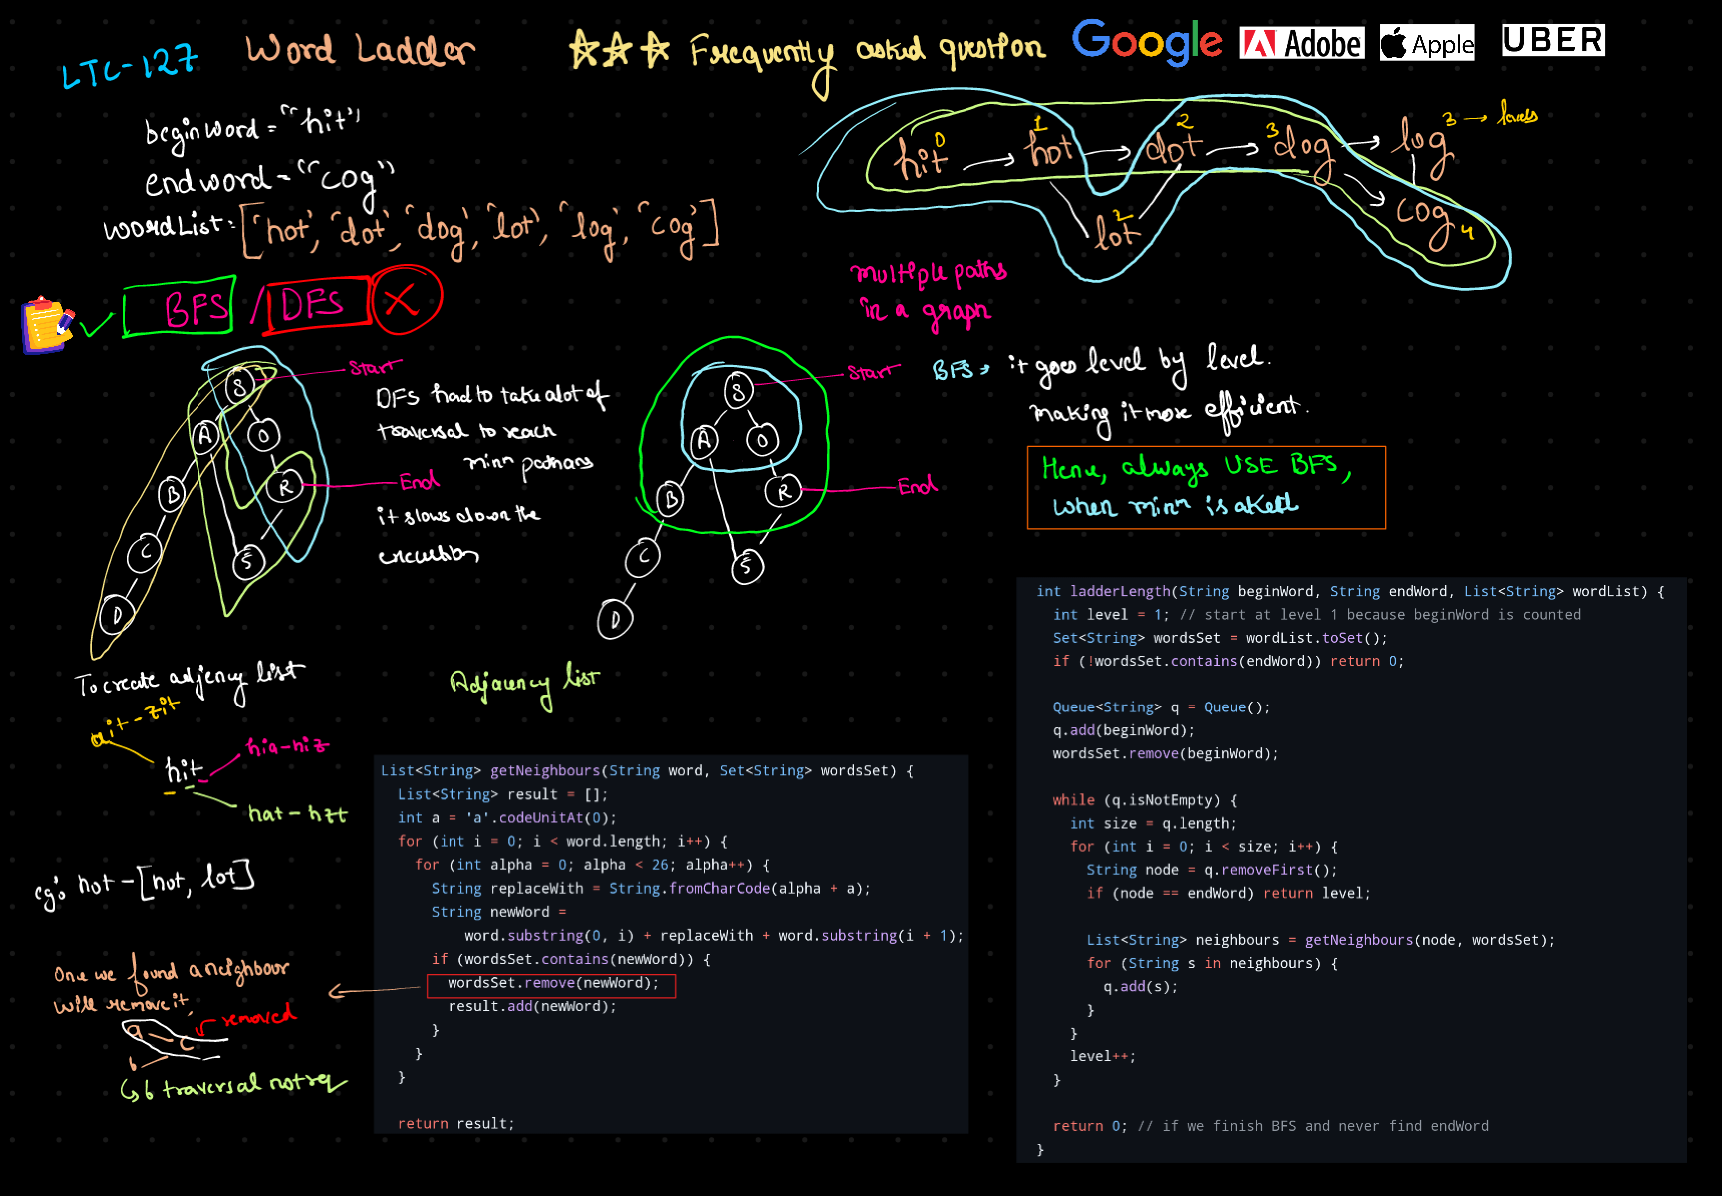 LTC-127 Word Ladder
Frequently asked question Google Adobe Apple UBER
beginword = "hit"
endword = "cog"
wordList = ['hot', 'dot', 'dog', 'lot', 'log', 'cog']
hit 0 → hot 1 → dot 2 → 3 dog → log 3 → levels
lot 2
cog 4
multiple paths
in a graph
BFS / DFS X
S
A O
B R
C S
D
Start
End
DFS had to take alot of
traversal to reach
minm pathans
it slows down the
S
A O
B R
C S
D
Start
End
BFS → it goes level by level.
making it more efficient.
Hence, always USE BFS,
when minm is asked
To create adjency list
ait - zit
hit
hia-hiz
hat - hzt
eg: hot - [hot, lot]
One we found a neighbour
will remove it,
a
c removed
b
b traversal not req
Adjacency list
List<String> getNeighbours(String word, Set<String> wordsSet) {
List<String> result = [];
int a = 'a'.codeUnitAt(0);
for (int i = 0; i < word.length; i++) {
for (int alpha = 0; alpha < 26; alpha++) {
String replaceWith = String.fromCharCode(alpha + a);
String newWord =
word.substring(0, i) + replaceWith + word.substring(i + 1);
if (wordsSet.contains(newWord)) {
wordsSet.remove(newWord);
result.add(newWord);
}
}
}
return result;
int ladderLength(String beginWord, String endWord, List<String> wordList) {
int level = 1; // start at level 1 because beginWord is counted
Set<String> wordsSet = wordList.toSet();
if (!wordsSet.contains(endWord)) return 0;
Queue<String> q = Queue();
q.add(beginWord);
wordsSet.remove(beginWord);
while (q.isNotEmpty) {
int size = q.length;
for (int i = 0; i < size; i++) {
String node = q.removeFirst();
if (node == endWord) return level;
List<String> neighbours = getNeighbours(node, wordsSet);
for (String s in neighbours) {
q.add(s);
}
}
level++;
}
return 0; // if we finish BFS and never find endWord
}